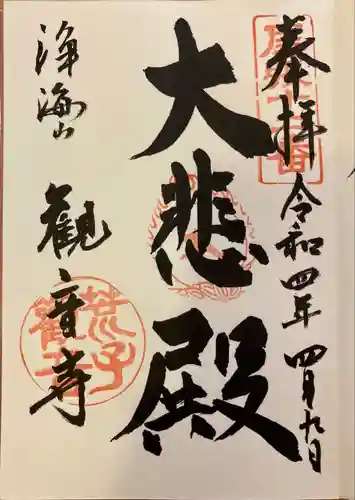 奉拝 令和四年四月九日
大悲殿
浄海山 観音寺
荒子
観音